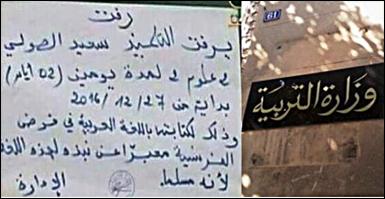 رفت
يرفت التلميذ سعيد الصولي
علوم 2 لمدة يومين (02 أيام)
بداية من 27/12/2016
وذلك لكتابته باللغة العربية في فرض
الفرنسية معبرا عن نبذه لهذه اللغة
لأنه مسلما.
الإدارة
61
وزارة التربية